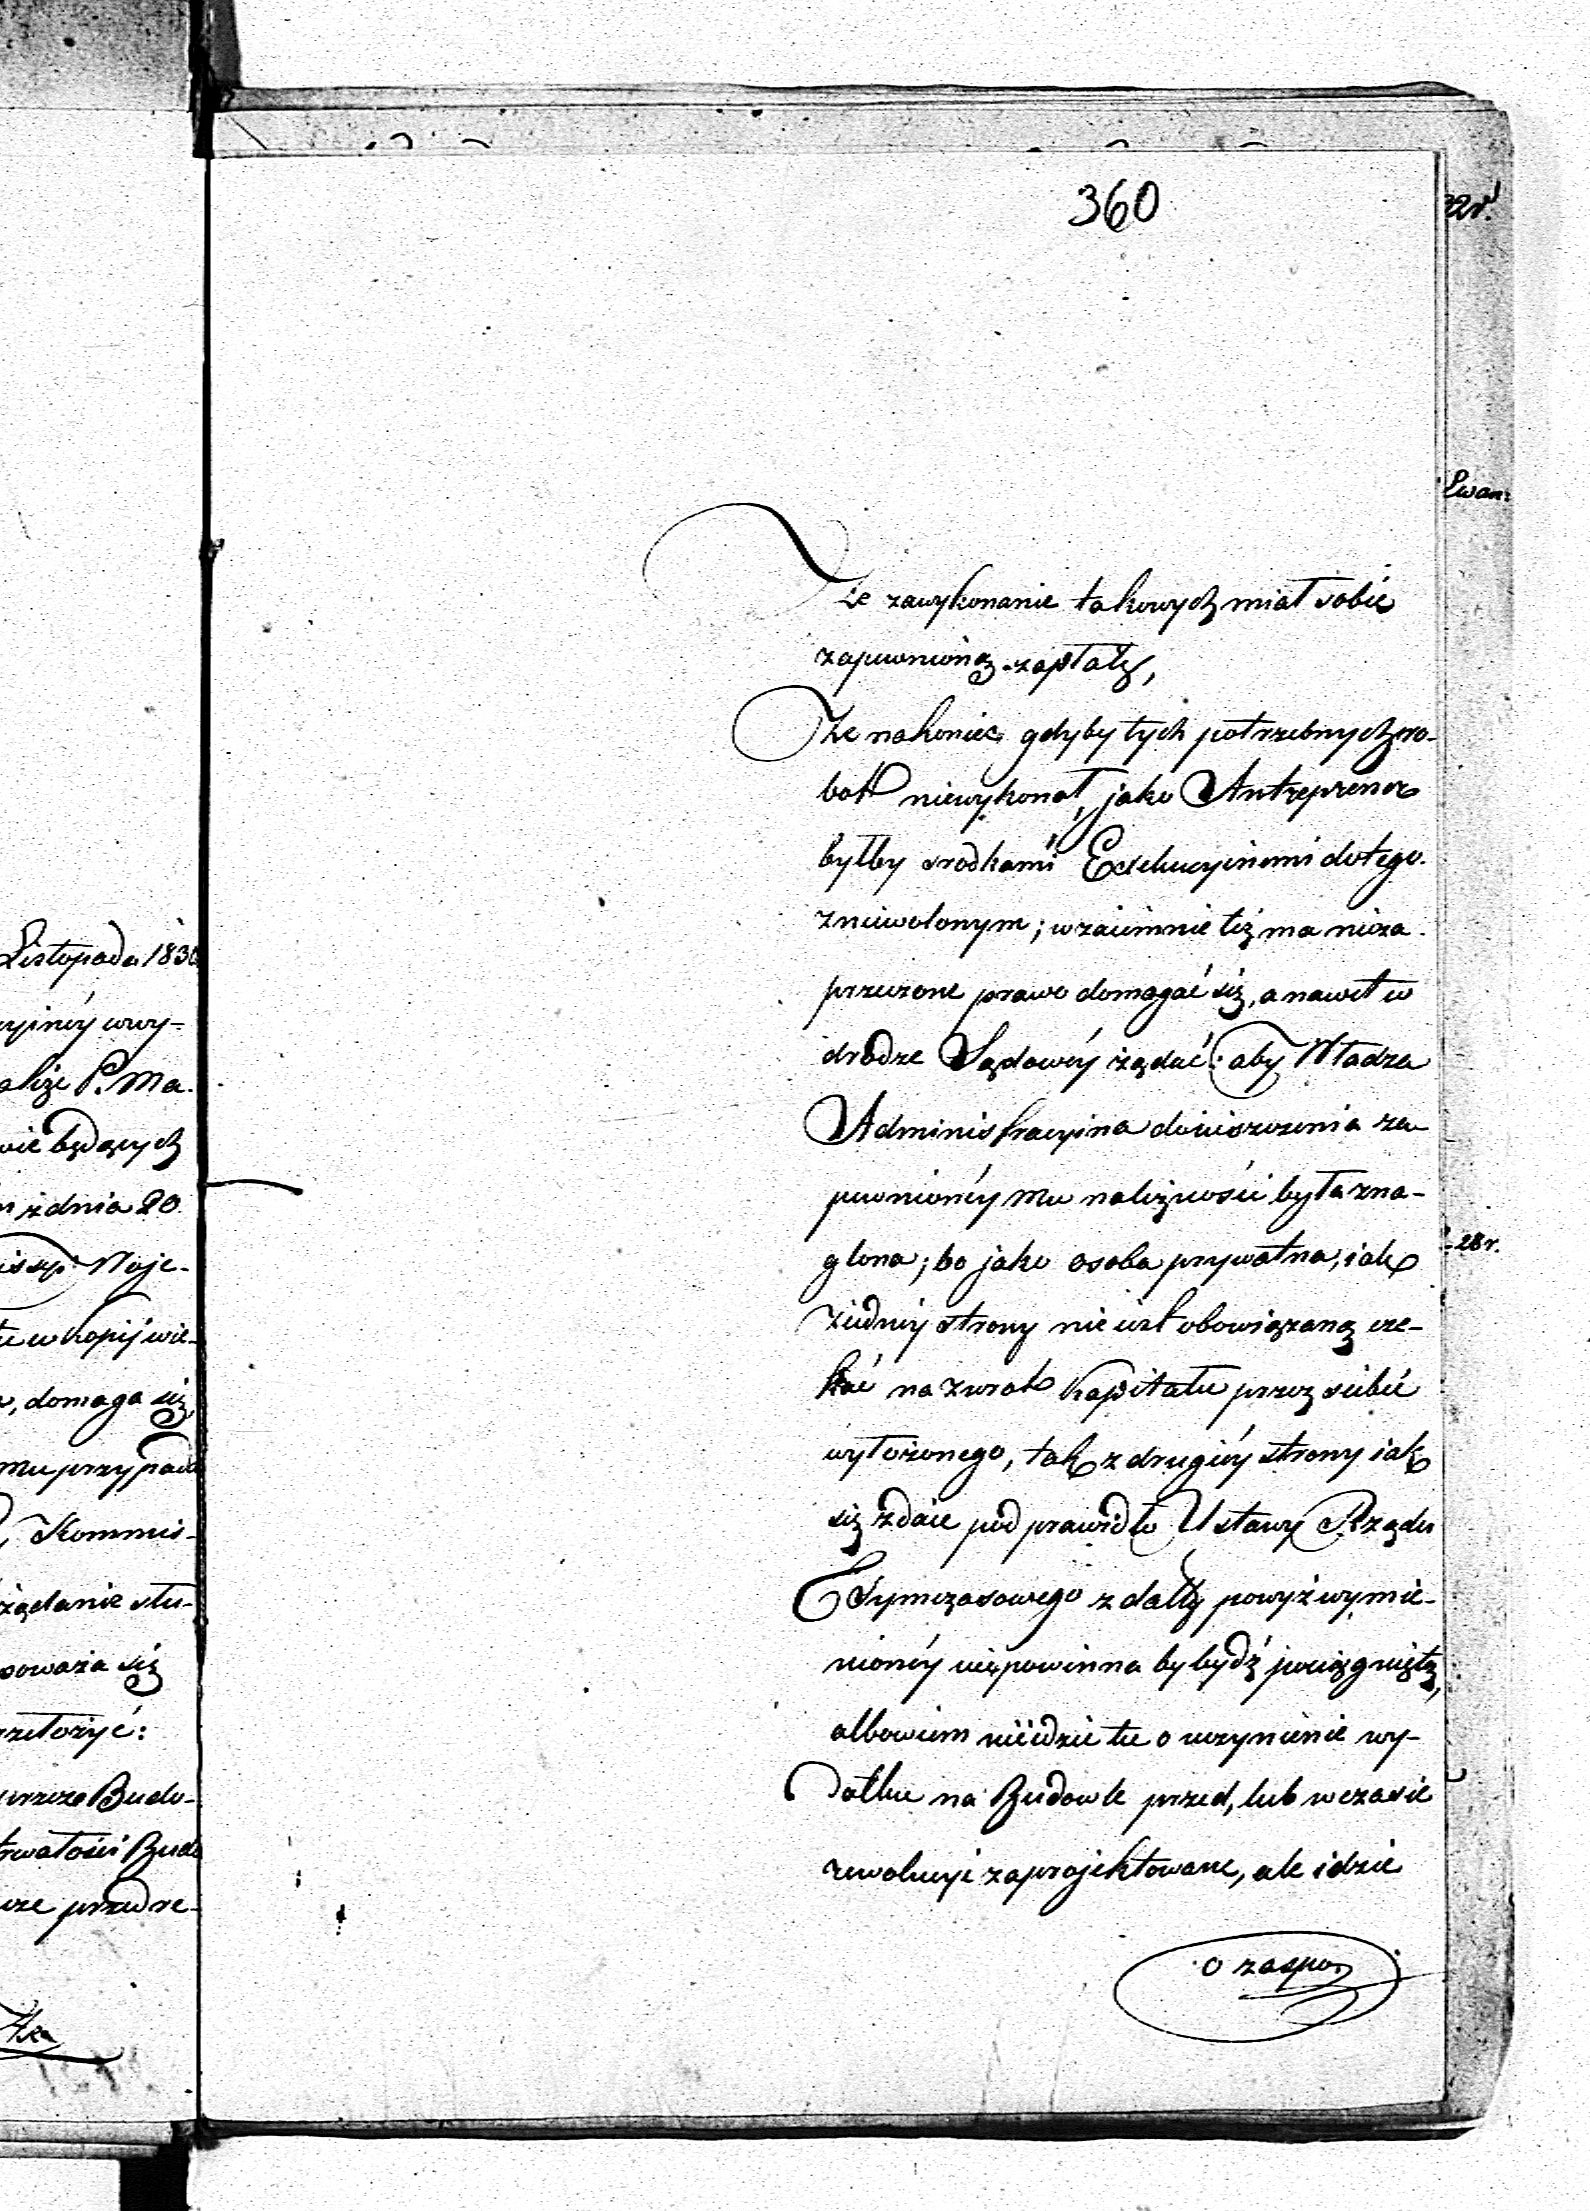 360
22r.
Ewan:
Że za wykonanie takowych miał sobie
zapewnioną zapłatę,
Że nakoniec gdyby tych potrzebnych ro-
bót niewykonał, jako Antreprener
byłby srodkami Exekucyinemi do tego
zniewolonym; wzaiemnie też ma nieza-
przeczone prawo domagać się, a nawet w
drodze Sądowéy żądać: aby Władza
Administracyina do uiszczenia za-
pewnionéy mu należności była zna-
glona; bo jako osoba prywatna, iak
z iednéy strony nie iest obowiązaną cze-
kać na zwrot kapitału przez siebie
wyłożonego, tak z drugiéy strony iak
się zdaie pod prawidło Ustawy Rządu
Tymczasowego z daty powyż wymie-
nionéy niepowinna by bydź pociągniętą,
albowiem nieidzie tu o uczynienie wy-
datku na Budowle przed, lub w czasie
rewolucyi zaprojektowane, ale idzie
o zaspo
28 r.
Listopada 1830
cyinéy wwy-
aliże P. Ma-
wie będących
z dnia 20
missyi Woje-
tu w kopij wie-
domaga się,
mu przypada
Kommis-
żądanie słu-
poważa się
rzełożyć:
przez Budo-
trwałości Budo
wze przed re-